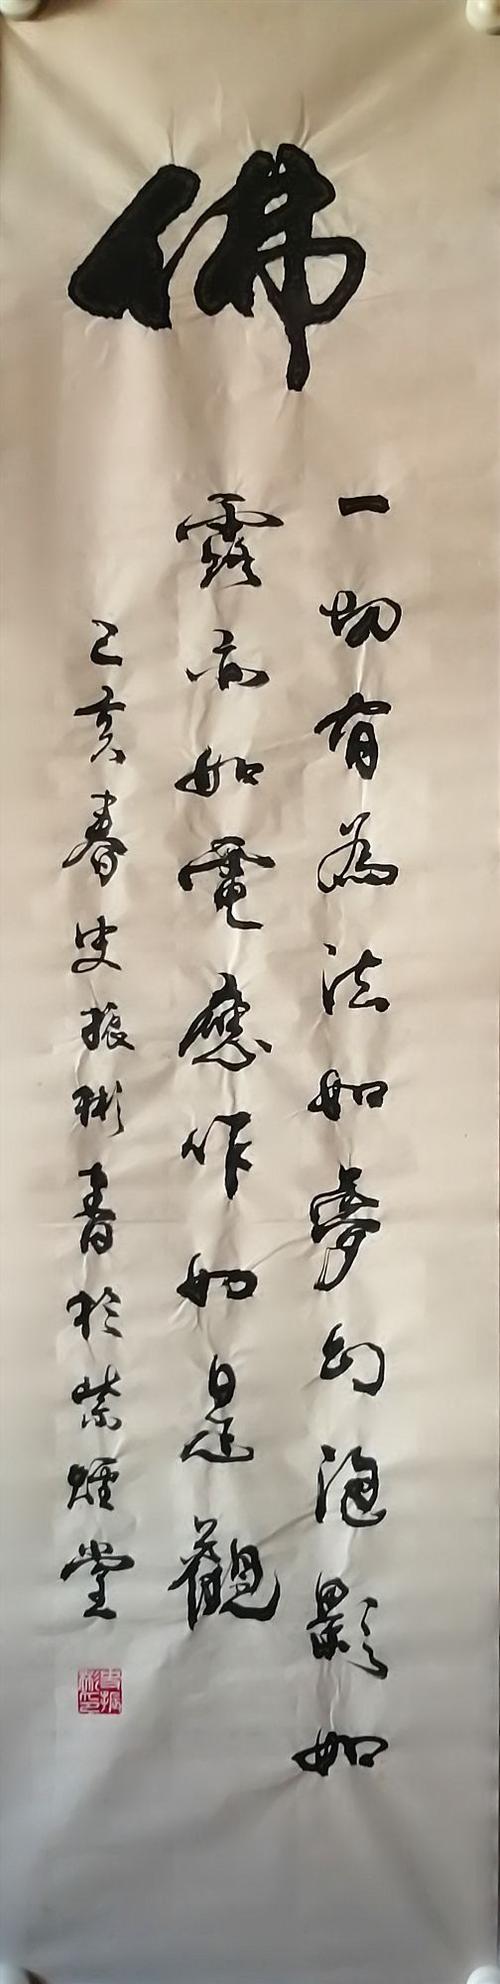 佛
一切有為法如夢幻泡影如
露亦如電應作如是觀
己亥春史振彬書於紫煙堂
史振彬印